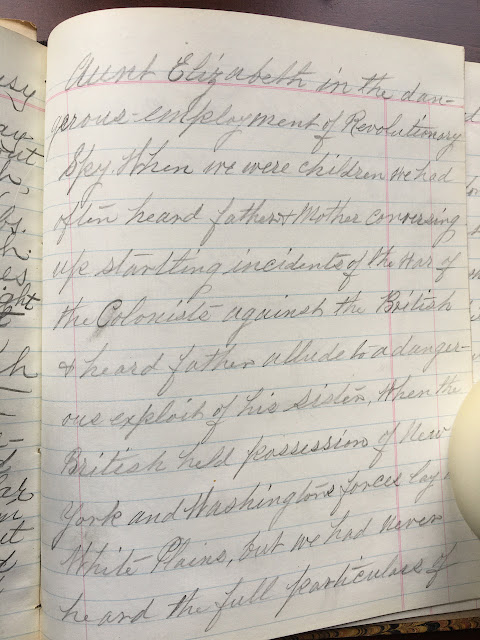 Aunt Elizabeth in the dan-
gerous employment of Revolutionary
Spy. When we were children we had
often heard father & Mother conversing
up startling incidents of the War of
the Colonists against the British
& heard father allude to a danger-
ous exploit of his sister, when the
British held possession of New
York and Washingtons forces lay
White Plains, but we had never
heard the full particulars of